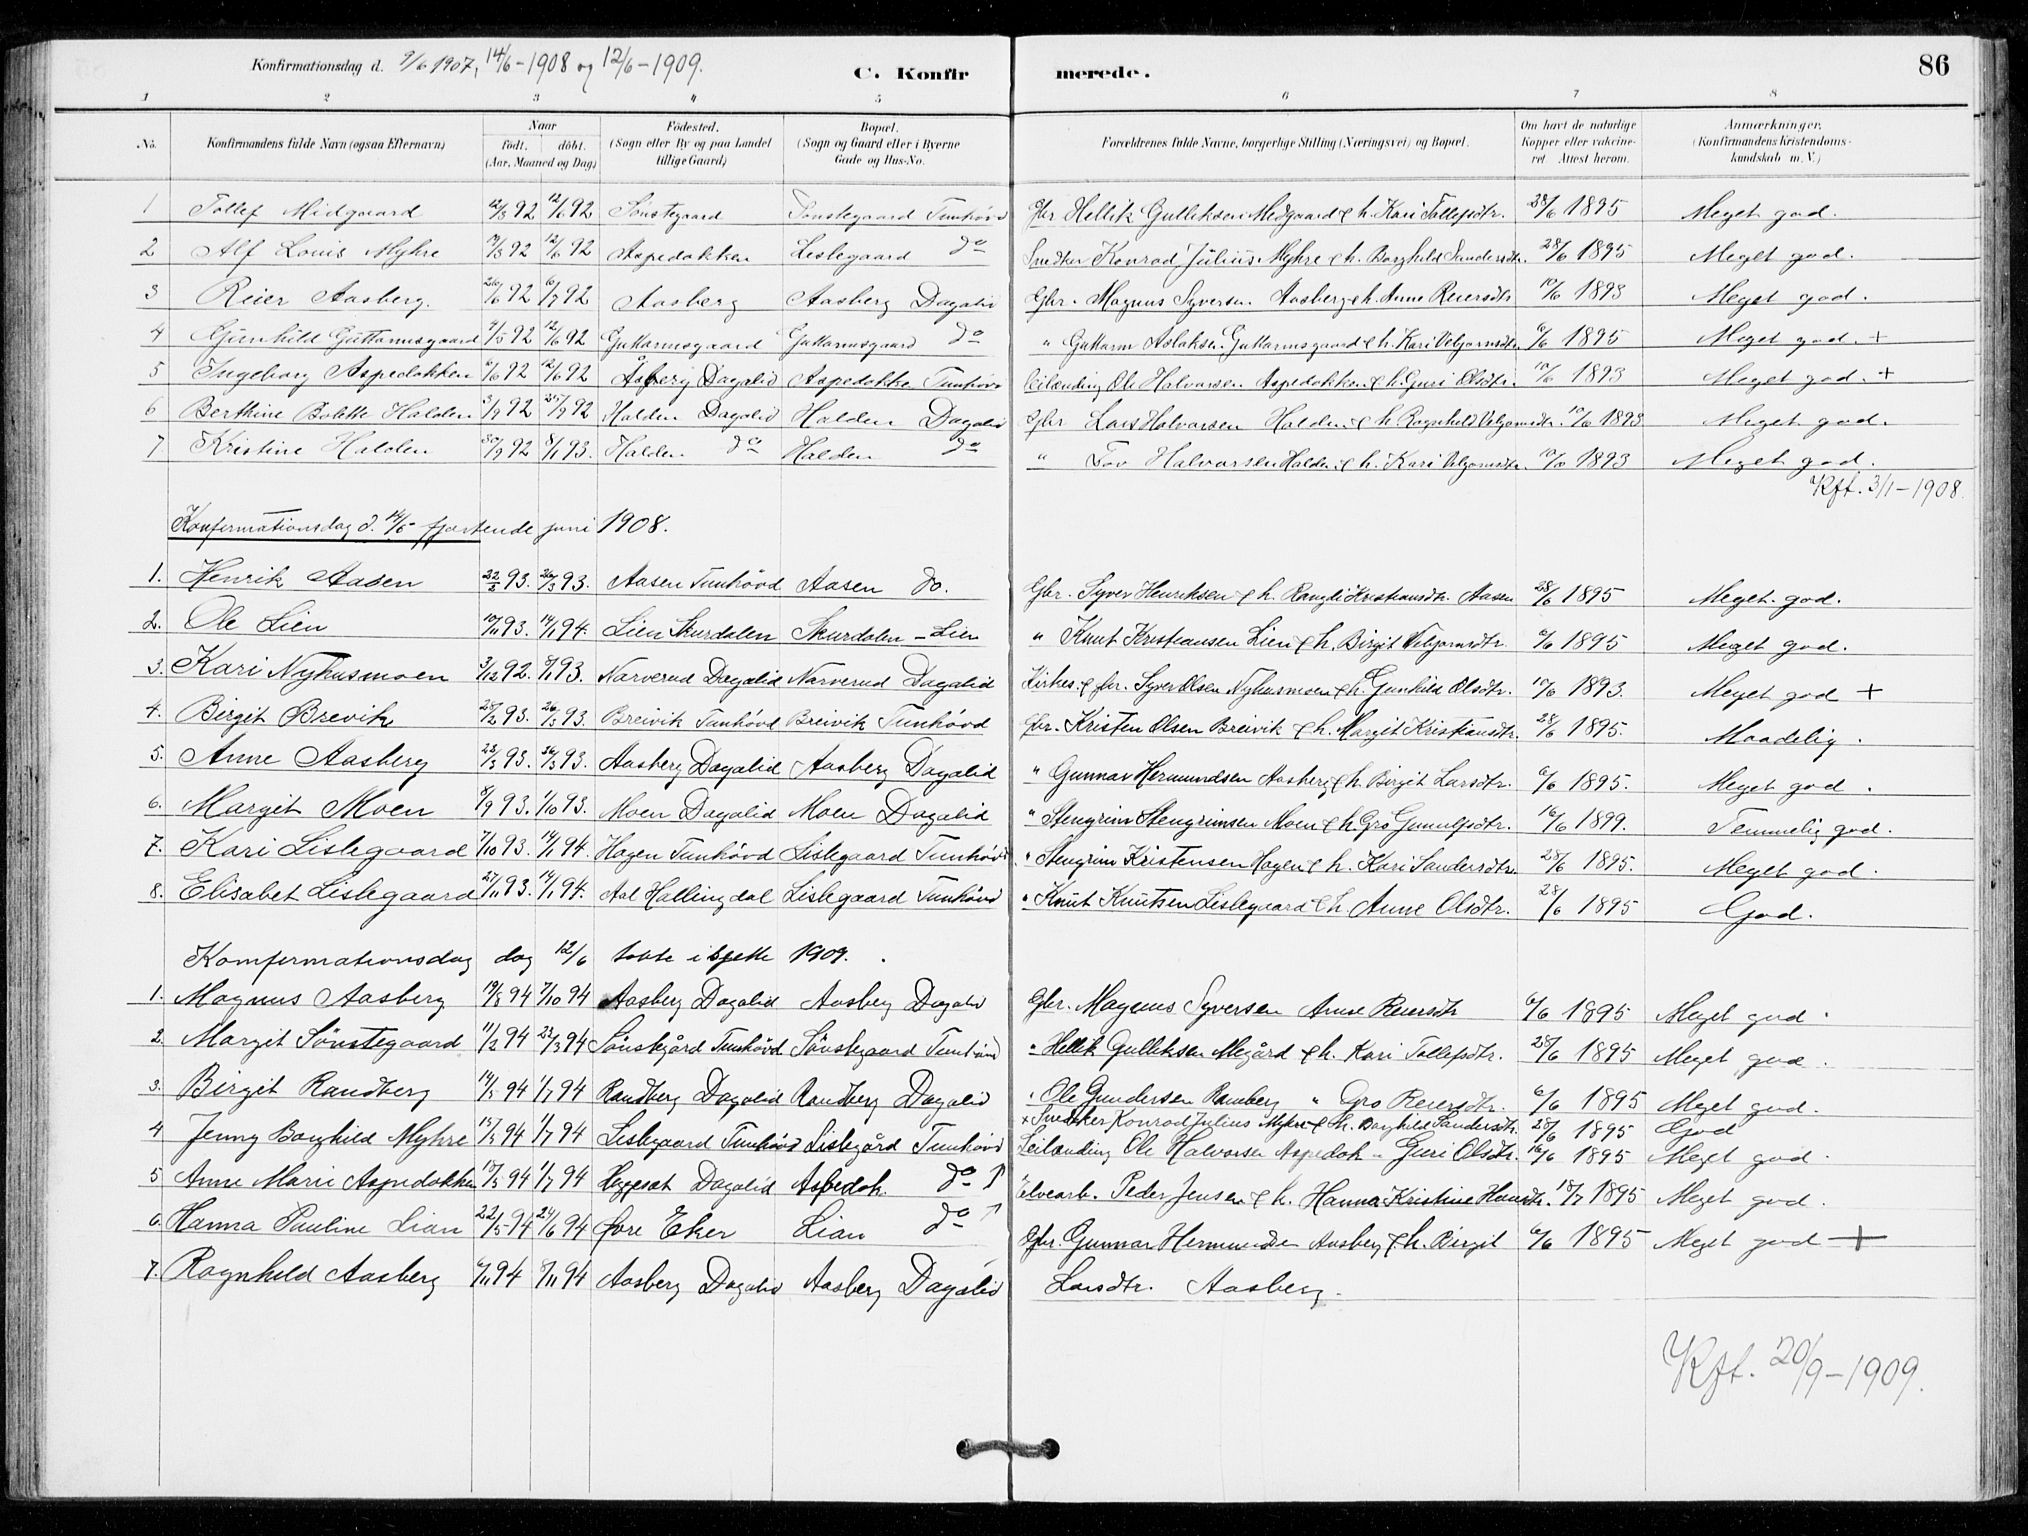 Konfirmationsdag d. 9/6 1907, 14/6-1908 og 12/6-1909.
C. Konfirmerede.
86
1 2 3 4 5 6 7 8
No. Konfirmandens fulde Navn (ogsaa Efternavn) Naar født. døbt. (Aar, Maaned og Dag) Fødested. (Sogn eller By og paa Landet tillige Gaard) Bopæl. (Sogn og Gaard eller i Byerne Gade og Hus-No. Forældrenes fulde Navne, borgerlige Stilling (Næringsvei) og Bopæl. Om havt de naturlige Kopper eller vakcineret Attest herom. Anmærkninger. (Konfirmandens Kristendomskundskab m. V.)
1 Tollef Midgaard 12/3 92 12/6 92 Sønstegaard Sønstegaard Tunhövd Gbr Hellik Gulliksen Medgaard & h. Kari Tollefsdtr. 28/6 1895 Meget god.
2 Alf Louis Myhre /3 92 12/6 92 Aspedokken Lislegaard do Snedker Konrad Julius Myhre & h. Borghild Sandersdtr. 28/6 1895 Meget god.
3 Reier Aasberg. 26/6 92 /7 92 Aasberg Aasberg Dagalid Gbr. Magnus Syversen Aasberg & h. Anne Reiersdtr 10/6 1893 Meget god.
4 Gunhild Guttormsgaard 4/5 92 12/6 92 Guttormsgaard Guttormsgaard do " Guttorm Aslaksen Guttormsgaard & h. Kari Velgjornsdtr. 6/6 1895 Meget god. +
5 Ingeborg Aspedokken 6/6 92 12/6 92 Åsberg Dagalid Aspedokke Tunhövd Leilænding Ole Halvorsen Aspedokken & h. Guri Olsdtr. 10/6 1893 Meget god. +
6 Berthine Bolette Halden 3/9 92 25/9 92 Halden Dagalid Halden Dagalid Gbr Lars Halvorsen Halden & h. Ragnhild Velgjornsdtr. 10/6 1893 Meget god.
7 Kristine Halden 30/9 92 8/1 93. Halden do Halden do " Tov Halvorsen Halden & h. Kari Velgjornsdtr. 1893 Meget god.
Kft. 3/1-1908.
Konfermationsdag d. 14/6 fjortende juni 1908.
1. Henrik Aasen 22/2 93. 26/3 93. Aasen Tunhövd Aasen do. Gbr. Syver Henriksen & h. Rangdi Kristiansdtr. Aasen 28/6 1895 Meget god.
2. Ole Lien 10/11 93. 14/1 94. Lien Skurdalen Skurdalen - Lien " Knut Kristiansen Lien & h. Birgit Velgjornsdtr. 6/6 1895 Meget god.
3. Kari Nyhusmoen 3/12 92. 8/1 93. Narverud Dagalid Narverud Dagalid Kirkes. & gbr. Syver Olsen Nyhusmoen & h. Gunhild Olsdtr. 10/6 1893. Meget god +
4. Birgit Brevik 25/2 93. 26/3 93. Breivik Tunhövd Breivik Tunhövd Gbr. Kristen Olsen Breivik & h. Margit Kristiansdtr. 28/6 1895. Maadelig.
5. Anne Aasberg 23/3 93. 3 93. Aasberg Dagalid Aasberg Dagalid " Gunnar Hermundsen Aasberg & h. Birgit Larsdtr. 6/6 1895. Meget god.
6. Margit Moen 8/9 93. 1/10 93. Moen Dagalid Moen Dagalid " Stengrim Stengrimsen Moen & h. Gro Gunulfsdtr. 16/6 1899. Temmelig god.
7. Kari Lislegaard 7/10 93. 14/1 94. Hagen Tunhövd Lislegaard Tunhövd " Stengrim Kristensen Hagen & h. Kari Sandersdtr. 28/6 1895. Meget god.
8. Elisabet Lislegaard 27/11 93. 14/1 94. Aal Hallingdal Lislegaard Tunhövd " Knut Knutsen Lislegaard & h. Anne Olsdtr. 28/6 1895 God.
Komfermationsdag dag 12/6 1909.
1. Magnus Aasberg 19/8 94 7/10 94 Aasberg Dagalid Aasberg Dagalid Gbr. Magnus Syversen Anne Reiersdtr 6/6 1895 Meget god.
2. Margit Sönstegaard 11/2 94 23/3 94 Sönstegård Tunhövd Sönstegaard Tunhövd " Hellik Gulliksen Megård & h. Kari Tollefsdtr. 28/6 1895 Meget god.
3. Birgit Randberg 14/5 94 1/7 94 Randberg Dagalid Randberg Dagalid " Ole Gundersen Ramberg " Gro Reiersdtr. 6/6 1895 Meget god.
4 Jenny Borghild Myhre 15/5 94 1/7 94 Lislegaard Tunhövd Lislegård Tunhövd + Snedker Konrad Julius Myhre & h. Borghild Sandersdtr. 28/6 1895 God
5 Anne Marie Aspedokken 18/5 94 1/7 94 Heggesæt Dagalid Aspedok. do Leilænding Ole Halvorsen Aspedok " Guri Olsdtr. 16/6 1895 Meget god.
6. Hanna Pauline Lian 22/5 94 24/6 94 Øvre Eker Lian do Elvearb. Peder Jensen & h. Hanna Kristine Hansdtr. 18/7 1895 Meget god.
7. Ragnhild Aasberg /11 94 /11 94 Aasberg Dagalid Aasberg Dagalid Gbr. Gunnar Hermundsen Aasberg & h. Birgit 6/6 1895 Meget god +
Larsdtr. Aasberg.
Kft. 20/9-1909.